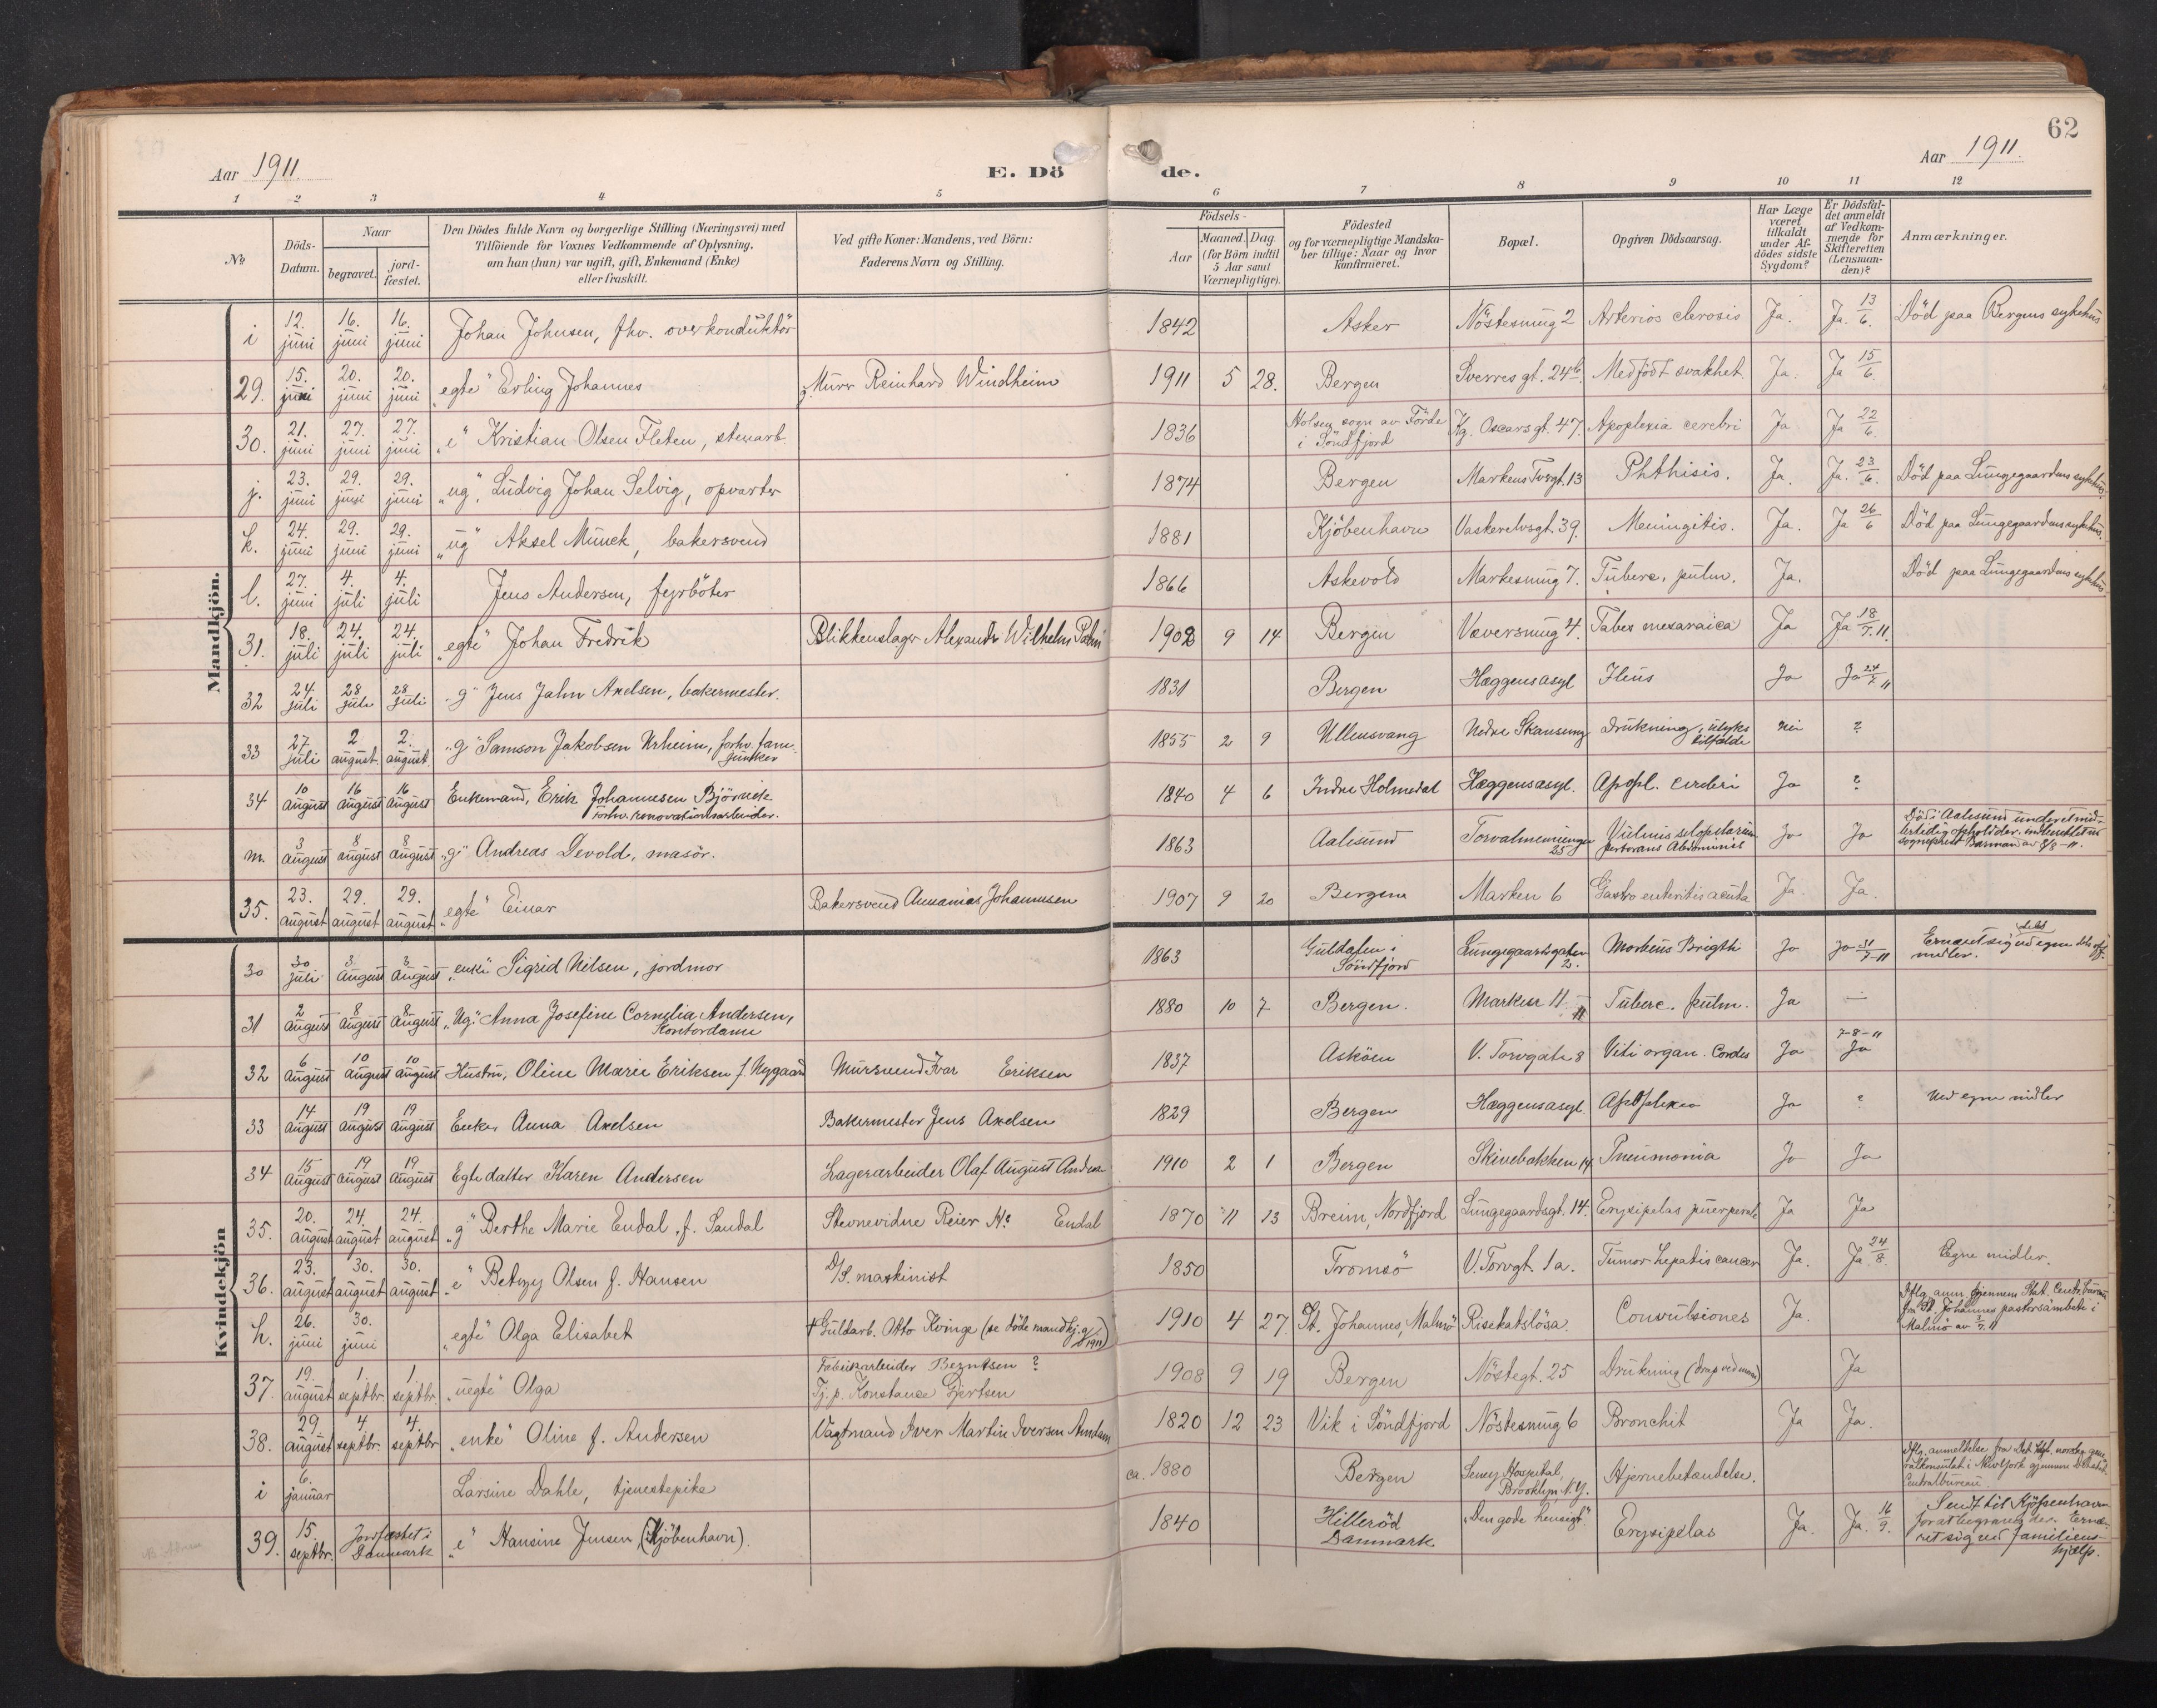 62
Aar 1911. E. Dö de. Aar 1911.
1 2 3 4 5 6 7 8 9 10 11 12
No
Döds-Datum.
Naar
begravet.
jord-fæstet.
Den Dödes fulde Navn og borgerlige Stilling (Næringsvei) med
Tilföiende for Voxnes Vedkommende af Oplysning,
om han (hun) var ugift, gift, Enkemand (Enke)
eller fraskilt.
Ved gifte Koner: Mandens, ved Börn:
Faderens Navn og Stilling.
Födsels-
Aar
Maaned. Dag
(for Börn indtil
5 Aar samt
Værnepligtige).
Födested
og for værnepligtige Mandska-
ber tillige: Naar og hvor
konfirmeret.
Bopæl.
Opgiven Dödsaarsag.
Har Læge
været
tilkaldt
under Af-
dödes sidste
Sygdom?
Er Dödsfal-
det anmeldt
af Vedkom-
mende for
Skifteretten
(Lensman-
den)?
Anmærkninger.
Mandkjön.
i 12. juni 16. juni 16. juni Johan Johnsen, fhv. overkonduktör 1842 Asker Nöstesmug 2 Arterios clerosis Ja. Ja. 13/6. Död paa Bergens sykehus
29. 15. juni 20. juni 20. juni "egte" Erling Johannes g. Murer Reinhard Windheim 1911 5 28. Bergen Sverresgt. 24b Medfödt svakhet. Ja. Ja 15/6.
30. 21. juni 27. juni 27. juni "e" Kristian Olsen Fleten, stenarb. 1836 Holsen sogn av Förde i Söndfjord Kg. Oscarsgt. 47. Apoplexia cerebri Ja Ja 22/6.
j. 23. juni 29. juni 29. juni "ug". Ludvig Johan Selvig, opvarter 1874 Bergen Markens Tvrgt. 13 Phthisis. Ja. Ja. 23/6. Död paa Lungegaardens sykehus.
k. 24. juni 29. juni 29. juni "ug" Aksel Munck, bakersvend 1881 Kjöbenhavn Vaskerelvsgt. 39. Meningitis. Ja. Ja 26/6 Död paa Lungegaardens sykehus.
l. 27. juni 4. juli 4. juli Jens Andersen, fyrböter 1866 Askevold Markesmug 7. Tuberc. pulm. Ja. Död paa Lungegaardens sykehus.
31. 18. juli 24. juli 24. juli "egte" Johan Fredrik Blikkenslager Alexander Wilhelm Palm 1908 9 14 Bergen Væversmug 4. Tabes mesaraica Ja Ja 18/7. 11.
32 24. juli 28 juli 28 juli "g" Jens Jahn Axelsen, bakermester. 1831 Bergen Hæggensasyl Ileus Ja Ja 24/7 11
33 27. juli 2 august 2. august "g" Samson Jakobsen Urheim, forhv. tam- 1855 2 9 Ullensvang Nedre Skansemg Drukning, ulyks tilfælde nei ?
34 10 august 16 august 16 august Enkemand, Erik Johannesen Björnek 1840 4 6 Indre Holmedal Hæggensasyl. Apopl. cerebri Ja ?
forhv. renovationsarbeider.
m. 3 august 8 august 8 august "g" Andreas Devold, masör. 1863 Aalesund Torvalmenningen 25 Vulnus sclopetarium perforans Abdominis Ja Ja Död i Aalesund under et mid-
lertidig ophold der.
sogneprest Barman av 8/8-11.
35. 23. august 29. august 29. august "egte" Einar Bakersvend Annanias Johannesen 1907 9 20 Bergen Marken 6 Gastro enteritis acuta Ja. Ja.
Kvindekjön
30 30 juli 3 august 3 august "enke" Sigrid Nilsen, jordmor 1863 Guldalen i Söndfjord Lungegaardsgaten 2. Morbus Brigthi Ja Ja 31/7-11 Ernæret sig ved egne midler.
31 2 august 8 august 8 august "Ug." Anna Josefine Cornelia Andersen, 1880 10 7 Bergen. Marken 11 Tuberc. pulm. Ja —
Kontordame
32 6 august 10 august 10 august Hustru, Oline Marie Eriksen f. Nygaard Mursvend Ivar Eriksen 1837 Asköen V. Torvgate 8 Viti organ. Cordis Ja 7-8-11 Ja
33 14 august 19 august 19 august Enke, Anna Axelsen Bakermester Jens Axelsen 1829 Bergen Hæggensasyl. Apoplexia Ja ? Ved egne midler
34 15 august 19 august 19 august Egte datter Karen Andersen Lagerarbeider Olaf August Andersen 1910 2 1 Bergen Skivebakken 14. Pneumonia Ja Ja
35. 20. august 24. august 24. august "g" Berthe Marie Endal, f. Sandal Stevnevidne Reier Endal 1870 11 13 Breim, Nordfjord Lungegaardsgt. 14. Erysipelas puerperale Ja Ja
36. 23. august 30. august 30. august "e" Betzy Olsen f. Hansen D/S. maskinist 1850 Tromsö V. Torvgt. 1a. Tumor hepatis cancer Ja. Ja. 24/8. Egne midler.
h. 26. juni 30. juni "egte" Olga Elisabet † Guldarb. Otto Kvinge (se döde mandkj. g 1911) 1910 4 27. St. Johannes, Malmö Risekatslösa. Convulsiones Ja. Iflg. anm. gjennem Stat. Centr. bureau
fra St. Johannes pastorsämbete i
Malmö av 3/7. 11
37. 19. august 1. septbr. 1. septbr. "uegte" Olga Fabrikarbeider Berntsen ? 1908 9 19 Bergen Nöstegt. 25 Drukning (drap ved moren) Ja
Tj. p. Konstance Gjertsen
38. 29 august 4. septbr. 4. septbr "enke" Oline f. Andersen Vagtmand Iver Martin Iversen Amdam 1820 12 23 Vik i Söndfjord Nöstesmug 6 Bronchit Ja Ja.
i 6. januar Larsine Dahle, tjenestepike ca. 1880 Bergen Seney Hospital, Brooklyn, N.Y. Hjernebetændelse. Iflg. anmeldelse fra Det kgl. norske gene-
ralkonsulat i Newyork gjennem Det stat.
Centralbureau
39. 15. septbr. Jordfæstet i Danmark "e" Hansine Jensen, (Kjöbenhavn). 1840 Hilleröd Danmark "Den gode hensigt". Erysipelas Ja. Ja. 16/9. Sendt til Kjöbenhavn
for at begraves der. Ernæ-
ret sig ved familiens
hjælp.